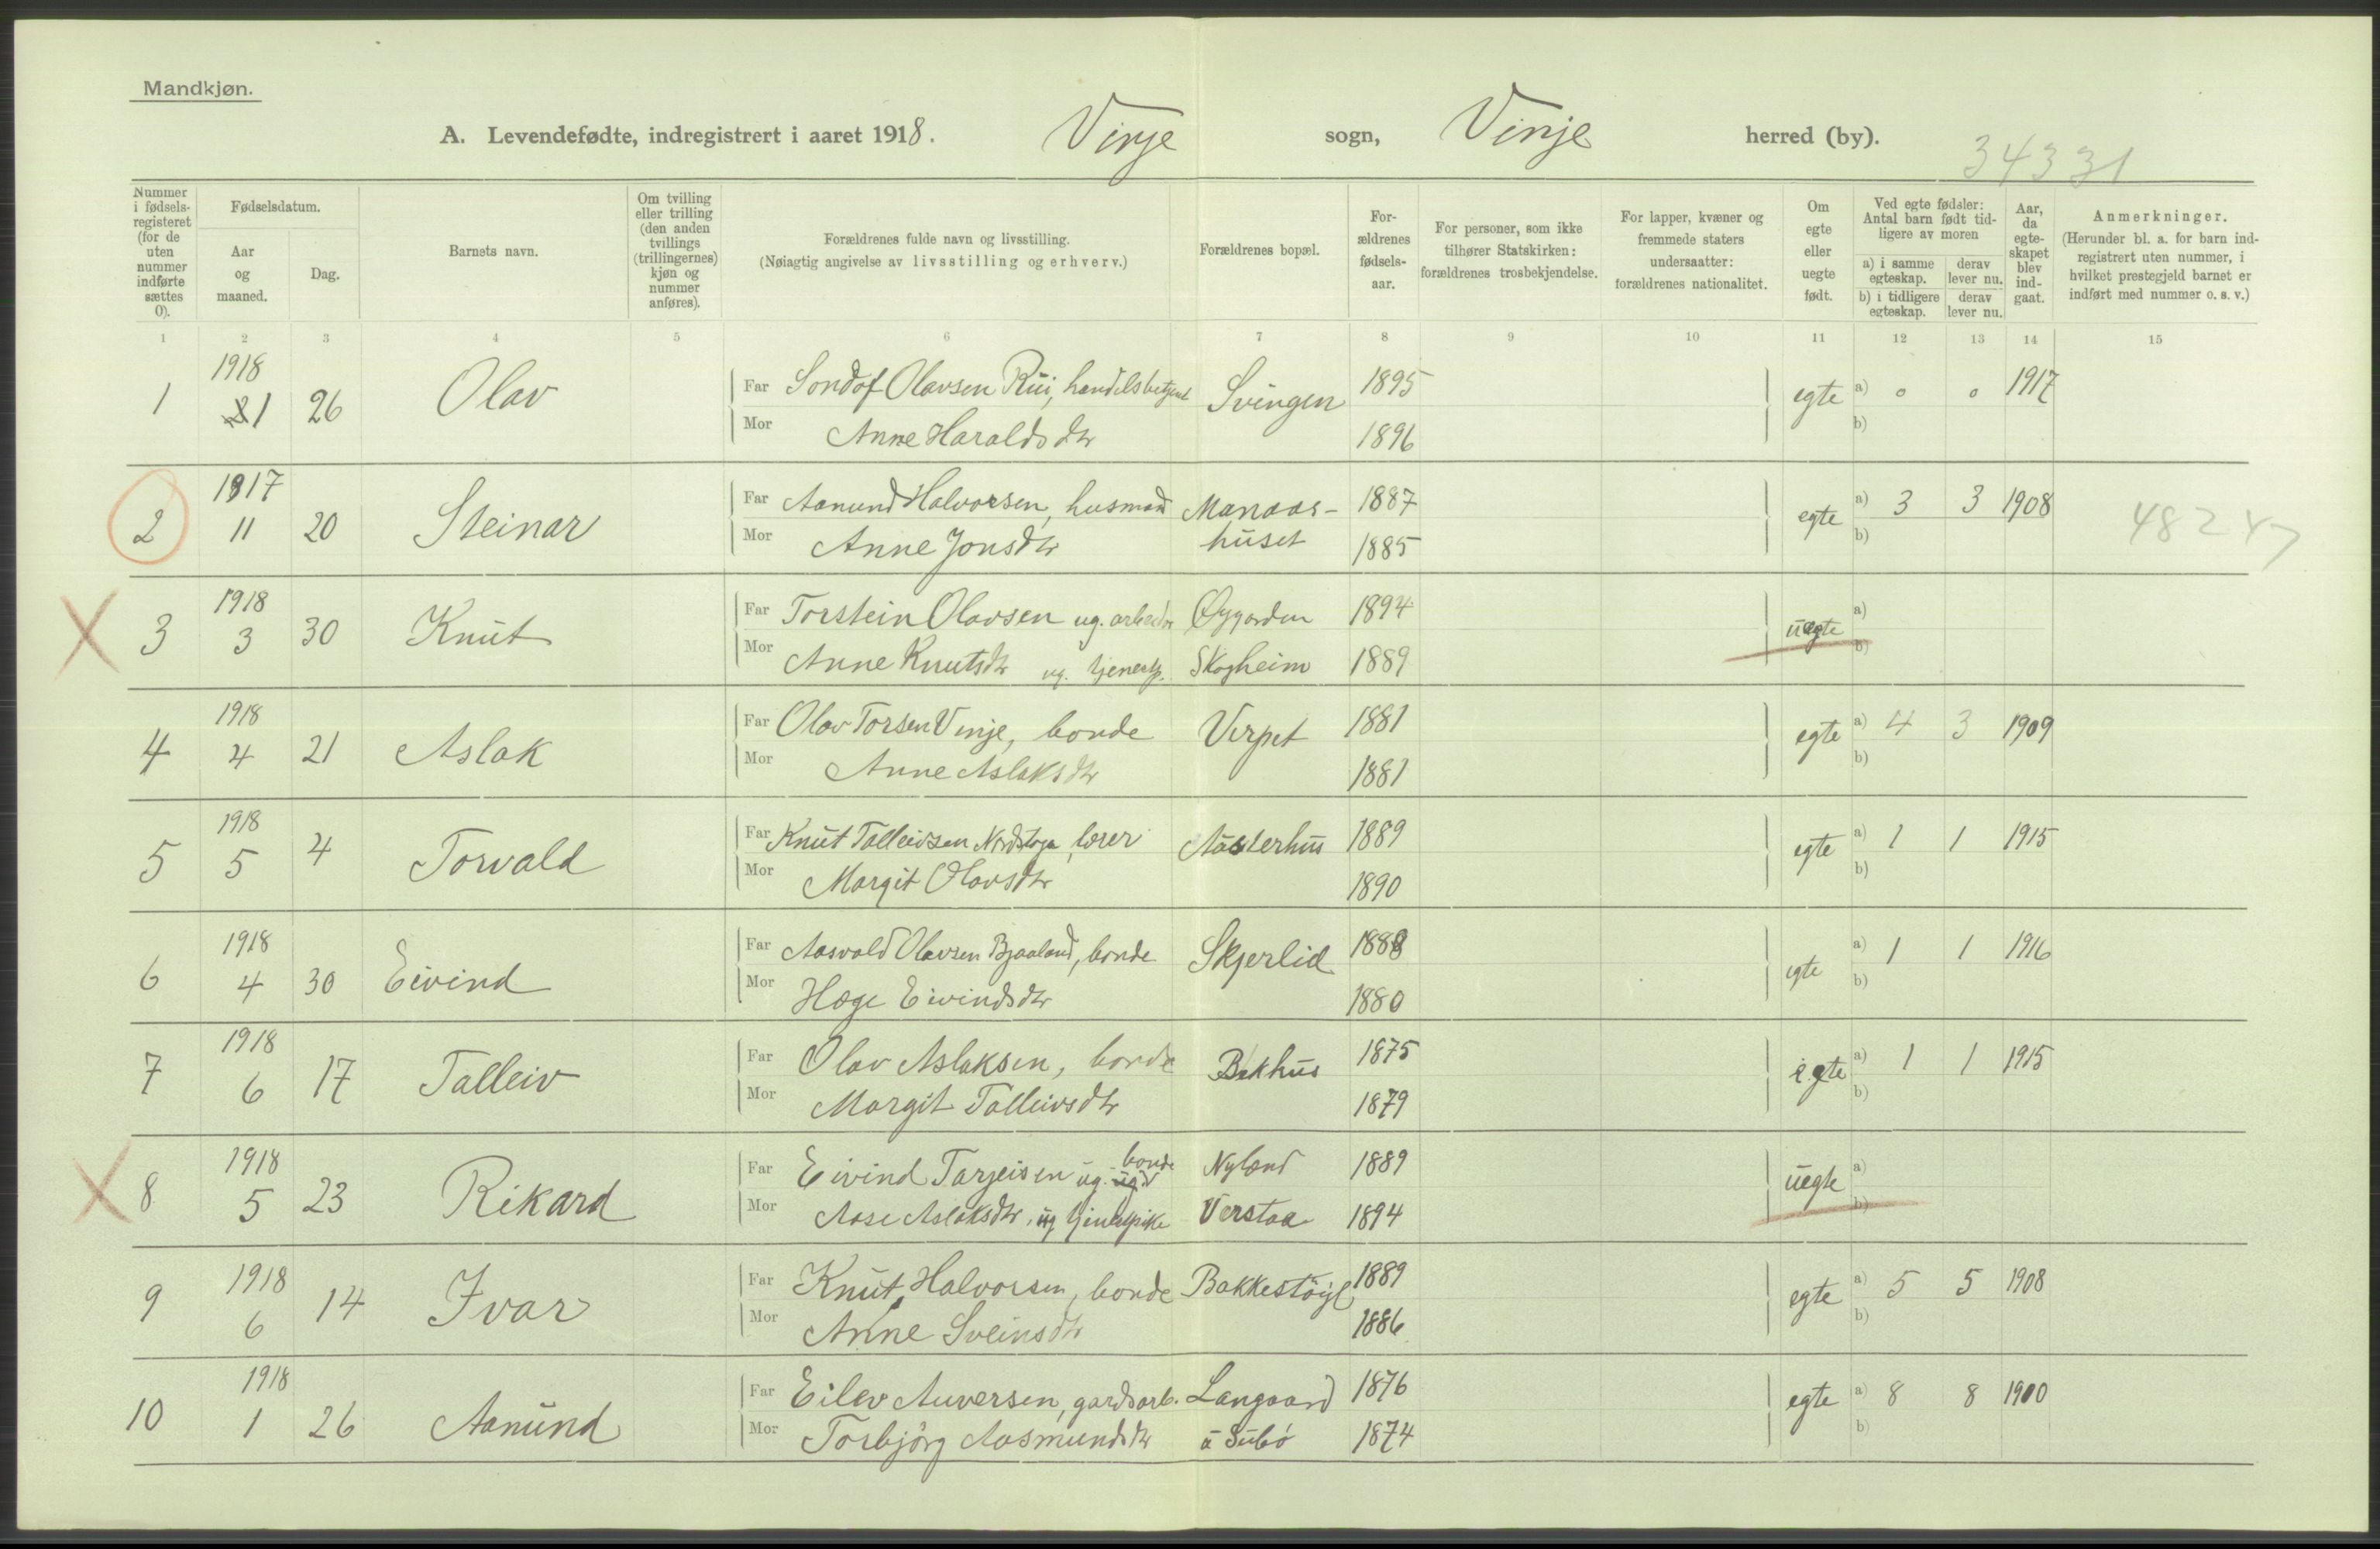 Mandkjøn.
A. Levendefødte, indregistrert i aaret 1918. Vinje sogn, Vinje herred (by).
34331
Nummer i fødsels-registeret (for de uten nummer indførte sættes 0).
Fødselsdatum.
Aar og maaned.
Dag.
Barnets navn.
Om tvilling eller trilling (den anden tvillings (trillingernes) kjøn og nummer anføres).
Forældrenes fulde navn og livsstilling.
(Nøiagtig angivelse av livsstilling og erhverv.)
Forældrenes bopæl.
For-ældrenes fødsels-aar.
For personer, som ikke tilhører Statskirken: forældrenes trosbekjendelse.
For lapper, kvæner og fremmede staters undersaatter: forældrenes nationalitet.
Om egte eller uegte født.
Ved egte fødsler: Antal barn født tid-ligere av moren
a) i samme egteskap. derav lever nu.
b) i tidligere egteskap. derav lever nu.
Aar, da egte-skapet blev ind-gaat.
Anmerkninger.
(Herunder bl. a. for barn ind-registrert uten nummer, i hvilket prestegjeld barnet er indført med nummer o. s. v.)
1 2 3 4 5 6 7 8 9 10 11 12 13 14 15
1 1918 1 26 Olav Far Sondof Olavsen Rui, handelsbetjent Svingen 1895 egte a) 0 0 1917
Mor Anne Haraldsdtr 1896 b)
2 1917 11 20 Steinar Far Aanund Halvorsen, husmand Manaas- 1887 egte a) 3 3 1908 48247
Mor Anne Jonsdtr huset 1885 b)
3 1918 3 30 Knut Far Torstein Olavsen ug. arbeider Øygarden 1894 uegte a)
Mor Anne Knutsdtr ug. tjenestp. Skogheim 1889 b)
4 1918 4 21 Aslak Far Olav Torsen Vinje, bonde Verpet 1881 egte a) 4 3 1909
Mor Anne Aslaksdtr 1881 b)
5 1918 5 4 Torvald Far Knut Talleivsen Nordstoga, lærer Austerhus 1889 egte a) 1 1 1915
Mor Margit Olavsdtr 1890 b)
6 1918 4 30 Eivind Far Aasvald Olavsen Bjaaland, bonde Skjerlid 1888 egte a) 1 1 1916
Mor Hæge Eivindsdtr 1880 b)
7 1918 6 17 Talleiv Far Olav Aslaksen, bonde Bakhus 1875 egte a) 1 1 1915
Mor Margit Talleivsdtr 1879 b)
8 1918 5 23 Rikard Far Eivind Tarjeisen ug. bonde Nyland 1889 uegte a)
Mor Aase Aslaksdtr, ug tjenestpike Verstaa 1894 b)
9 1918 6 14 Ivar Far Knut Halvorsen, bonde Bakkestøyl 1889 egte a) 5 5 1908
Mor Anne Sveinsdtr 1886 b)
10 1918 1 26 Aanund Far Eilev Auversen, gardsarb. Langaard 1876 egte a) 8 8 1900
Mor Torbjörg Aasmundsdtr 1874 b)